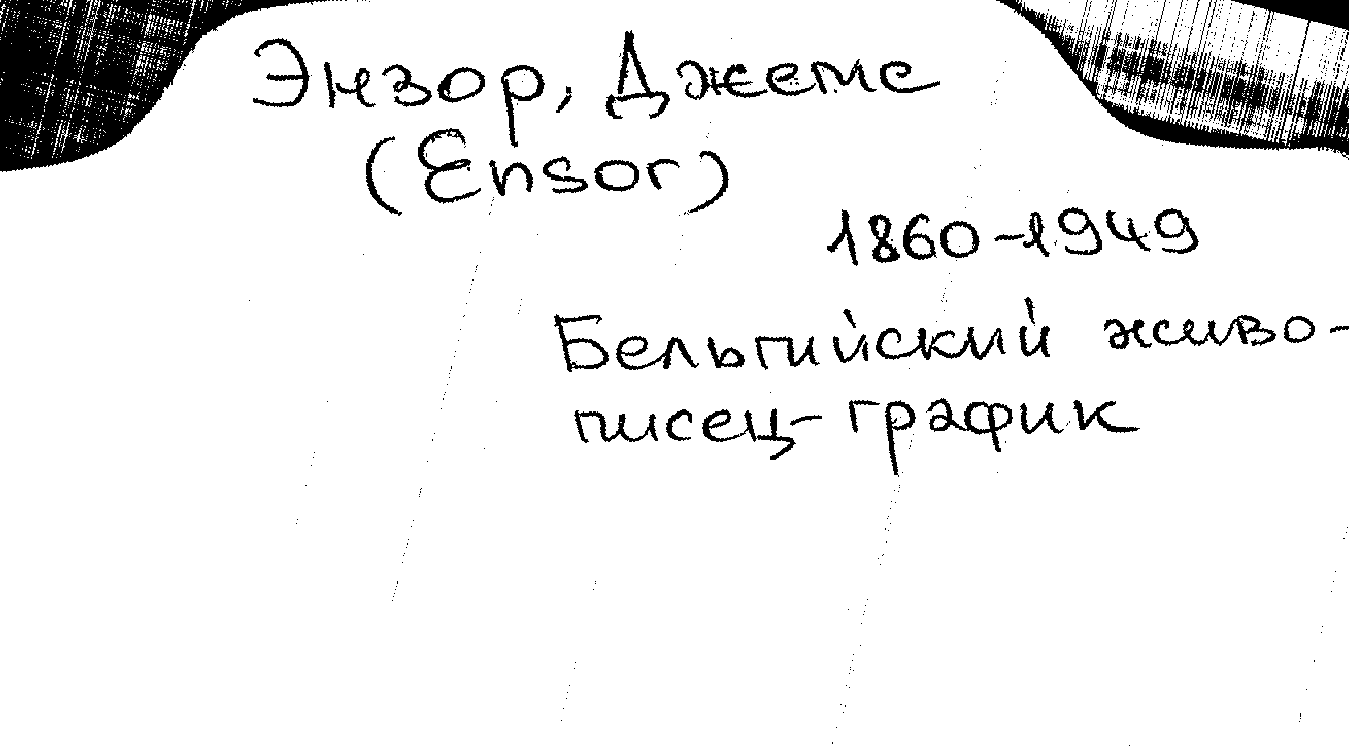 Энзор, Джемс
(Ensor)
1860-1949
Бельгийский живо-
писец-график